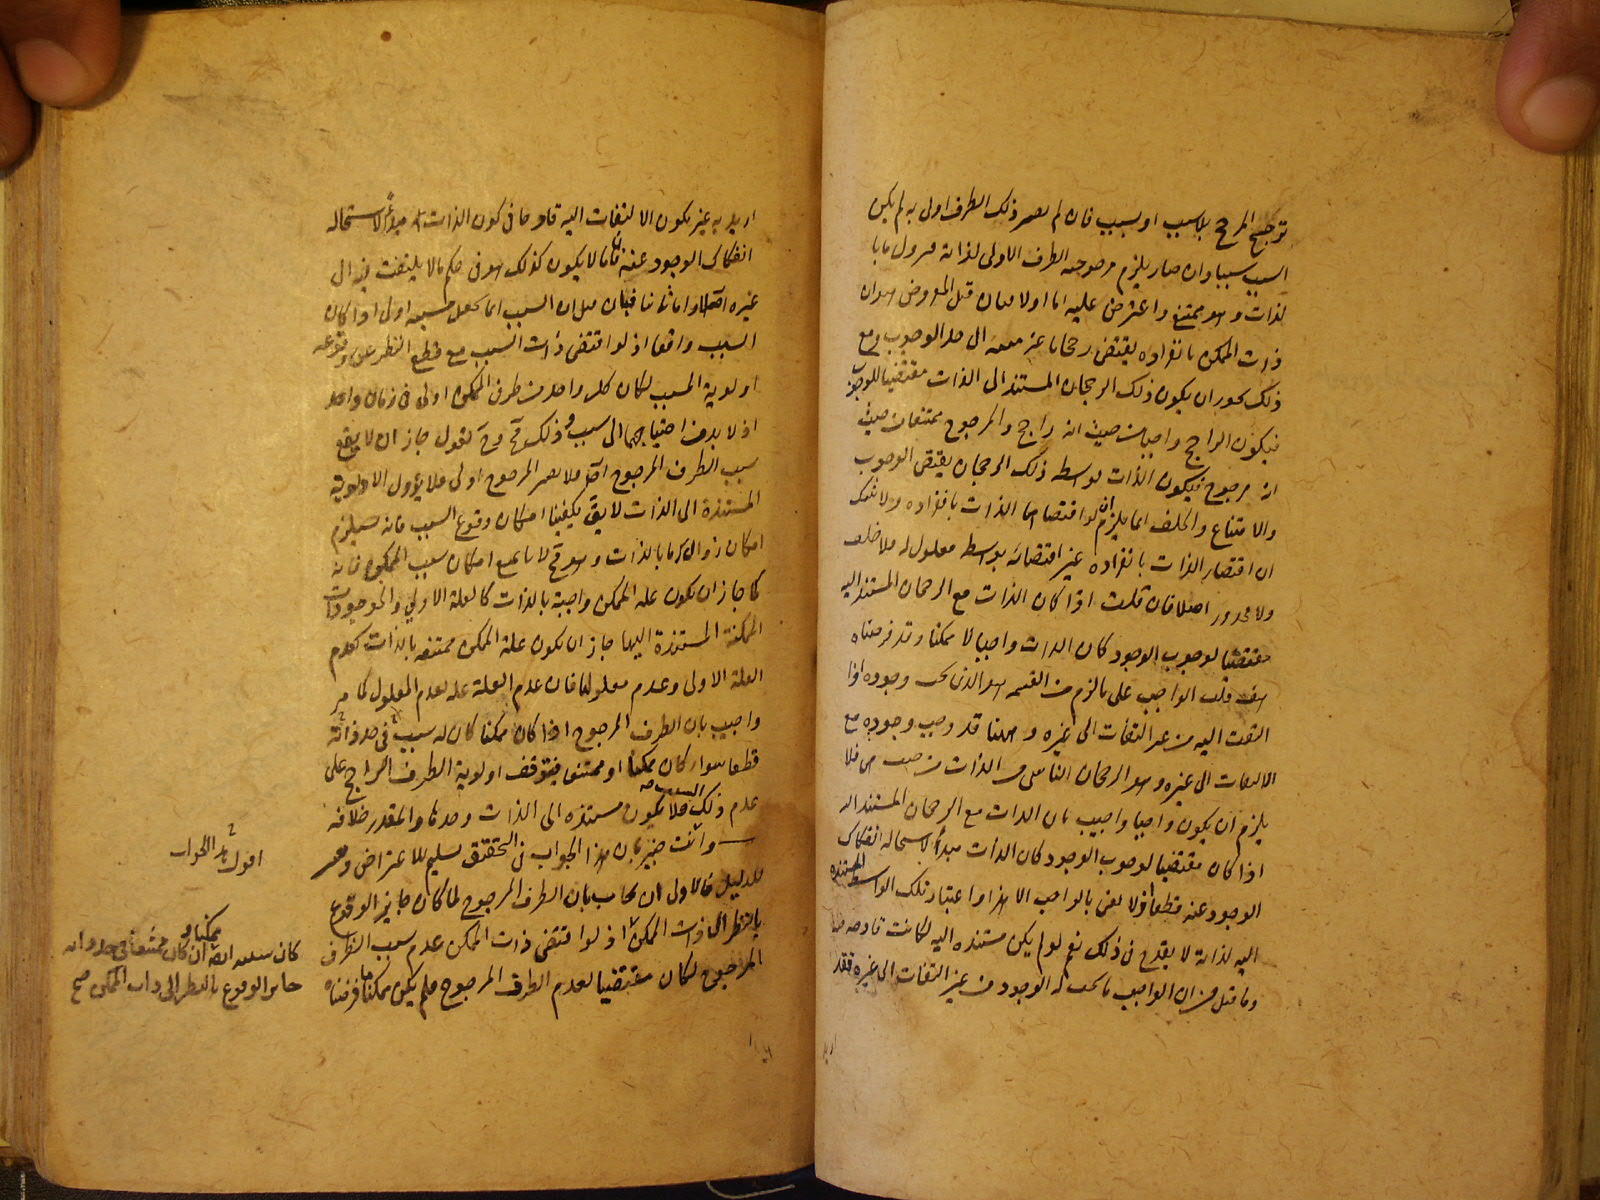 ترجيح المرجوح بلا سبب او بسبب فان لم يصر ذلك الطرف اولى به لم يكن
السبب سببا وان صار يلزم مرجوحية الطرف الاولى لذاته فيزول ما با
لذات وهو ممتنع واعترض عليه اما اولا فبان قبل المفروض هو ان
ذات الممكن بانفراده يقتضى رجحانا غير منته الى حد الوجوب ومع
ذلك يجوز ان يكون ذلك الرجحان المستند الى الذات مقتضيا للوجوب
فيكون الراجح واجبا من حيث انه راجح والمرجوح ممتنعا من حيث
انه مرجوح فيكون الذات بواسطه ذلك الرجحان يقتضى الوجوب
والامتناع والخلف انما يلزم ان لو اقتضاهما الذات بانفراده ولا شك
ان اقتضاء الذات بانفراده غير اقتضائه بواسطه معلول له فلا خلف
ولا محذور اصلا فان قلت اذا كان الذات مع الرجحان المستند اليه
مقتضيا لوجوب الوجود كان الذات واجبا لا ممكنا وقد فرضناه
هف قلت الواجب على ما لزم من القسمه هو الذى يجب وجوده اذا
التفت اليه من غير التفات الى غيره وههنا قد وجب وجوده مع
الالتفات الى غيره وهو الرجحان الناشى من الذات من حيث هى فلا
يلزم ان يكون واجبا واجيب بان الذات مع الرجحان المستند اليه
اذا كان مقتضيا لوجوب الوجود كان الذات مبدأ لاستحالة انفكاك
الوجود عنه قطعا ولا نعنى بالواجب الا هذا واعتبار تلك الواسطة المستندة
اليه لذاته لا يقدح فى ذلك نعم لو لم يكن مستنده اليه لكانت قادحه
وما قيل من ان الواجب ما يجب له الوجود من غير التفات الى غيره فقد
اريد
اريد به غير يكون الالتفات اليه قادحا فى كون الذات مبدأ لاستحاله
انفكاك الوجود عنه فاما ما لا يكون كذلك فهو فى حكم ما لا يلتفت فيه الى
غيره اصلا واما ثانيا فبان قبل ان السبب انما يجعل مسببه اولى اذا كان
السبب واقعا اذ لو اقتضى ذات السبب مع قطع النظر عن وقوعه
اولوية المسبب لكان كل واحد من طرفى الممكن اولى فى زمان واحد
اذ لا بد من احتياجهما الى سبب وذلك مح وح نقول جاز ان لا يقع
سبب الطرف المرجوح اصلا فلا يصير المرجوح اولى فلا يزول الاولوية
المستندة الى الذات لا يق يكفينا امكان وقوع السبب فانه يستلزم
امكان زوال ما بالذات وهو مح لانا نمنع امكان سبب الممكن فانه
كما جاز ان يكون علة الممكن واجبة بالذات كالعلة الاولى والموجودات
الممكنة المستندة اليها جاز ان يكون علة الممكن ممتنعه بالذات كعدم
العلة الاولى وعدم معلولها فان عدم العلة علة لعدم المعلول كما مر
واجيب بان الطرف المرجوح اذا كان ممكنا كان له سبب فى حد ذاته
قطعا سواء كان ممكنا او ممتنعا فيتوقف اولوية الطرف الراجح على
عدم ذلك السبب فلا يكون مستنده الى الذات وحدها والمقدر خلافه
وانت خبير بان هذا الجواب فى التحقيق تسليم للاعتراض وتغيير
للدليل فالاولى ان يجاب بان الطرف المرجوح لما كان جايز الوقوع
بالنظر الى ذات الممكن اذ لو اقتضى ذات الممكن عدم سبب الطرف
المرجوح لكان مقتضيا لعدم الطرف المرجوح فلم يكن ممكنا ما فرضناه
اقول هذا الجواب
كان سببه ايضا ممكنا وان كان ممتنعا فى حد ذاته
جايز الوقوع بالنظر الى ذات الممكن صح